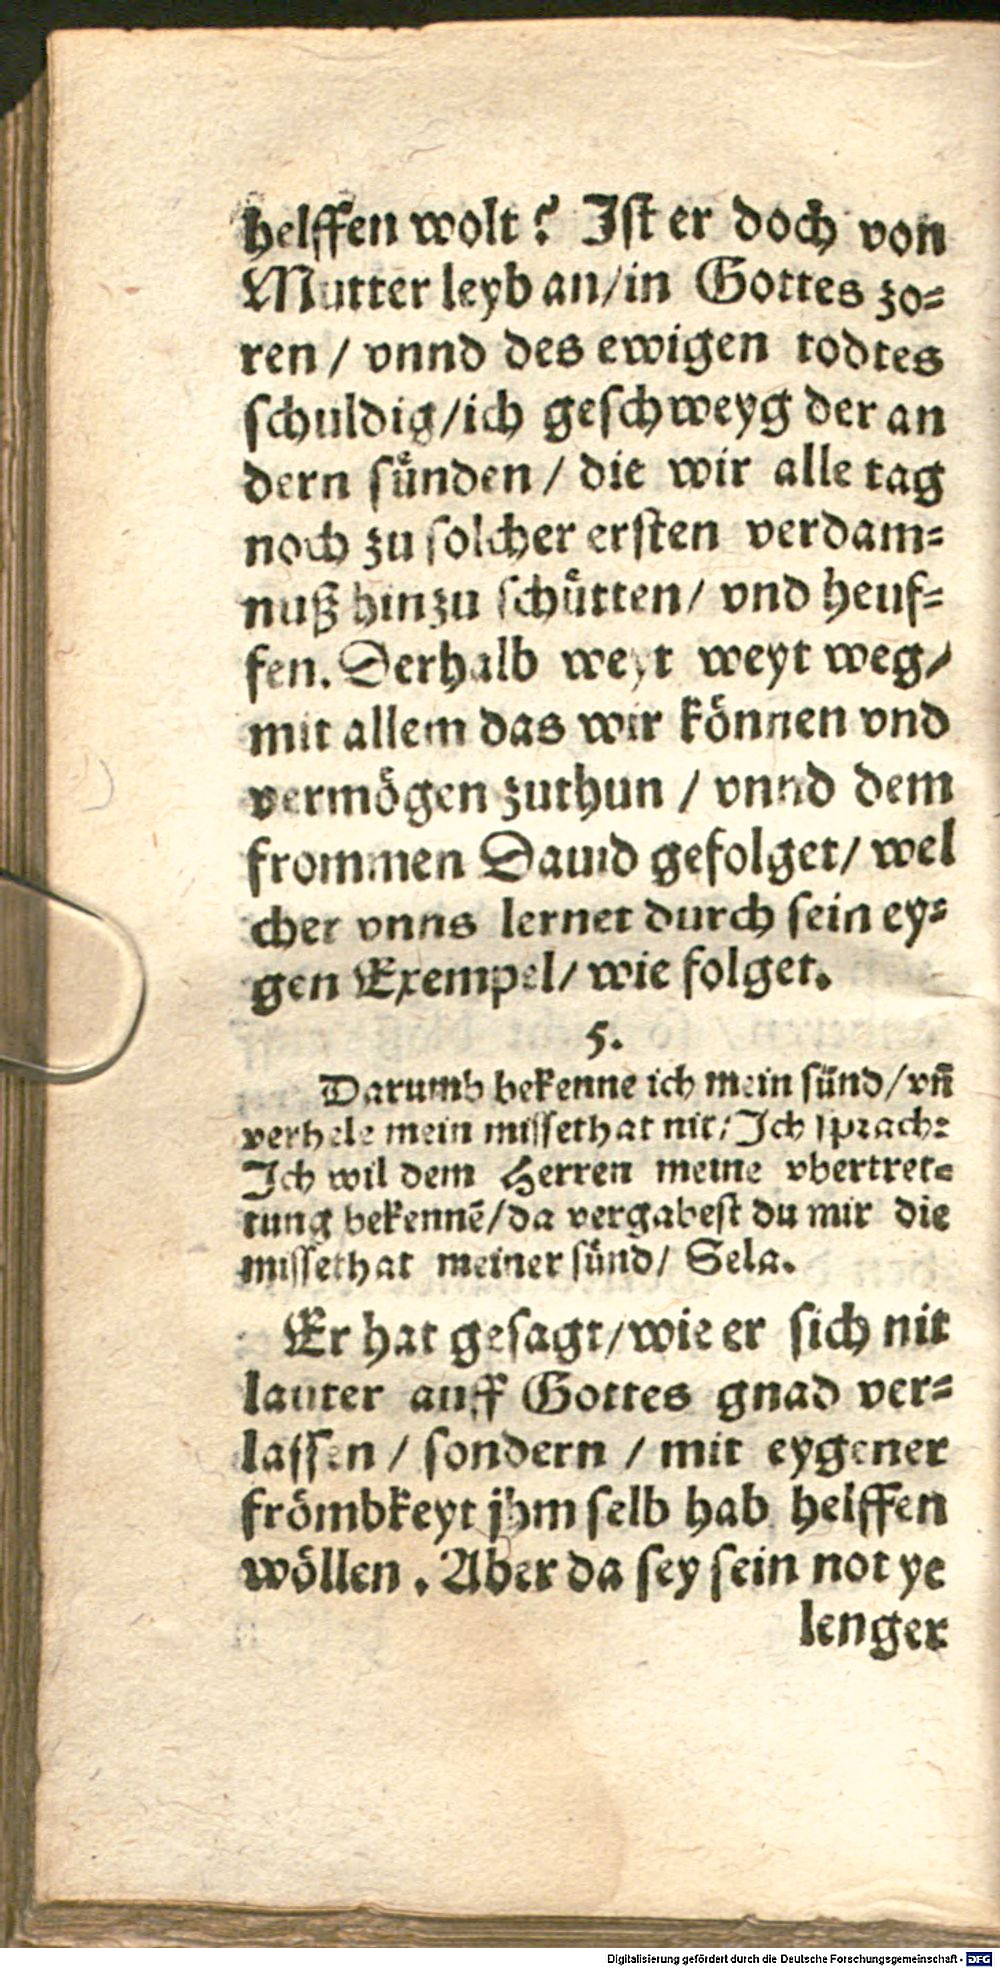 helffen wolt? Ist er doch von
Mutter leyb an/in Gottes zo=
ren / vnnd des ewigen todtes
schuldig/ich geschweyg der an
dern sünden / die wir alle tag
noch zu solcher ersten verdam=
nuß hinzu schütten/ vnd heuf=
fen. Derhalb weyt weyt weg/
mit allem das wir können vnd
vermögen zuthun / vnnd dem
frommen Dauid gefolget/ wel
cher vnns lernet durch sein ey=
gen Exempel/ wie folget.
5.
Darumb bekenne ich mein sünd/vñ
verhele mein missethat nit/ Ich sprach:
Ich wil dem Herren meine vbertret=
tung bekennẽ/da vergabest du mir die
missethat meiner sünd/ Sela.
Er hat gesagt/wie er sich nit
lauter auff Gottes gnad ver=
lassen / sondern / mit eygener
frömbkeyt jhm selb hab helffen
wöllen. Aber da sey sein not ye
lenger
Digitalisierung gefördert durch die Deutsche Forschungsgemeinschaft - DFG